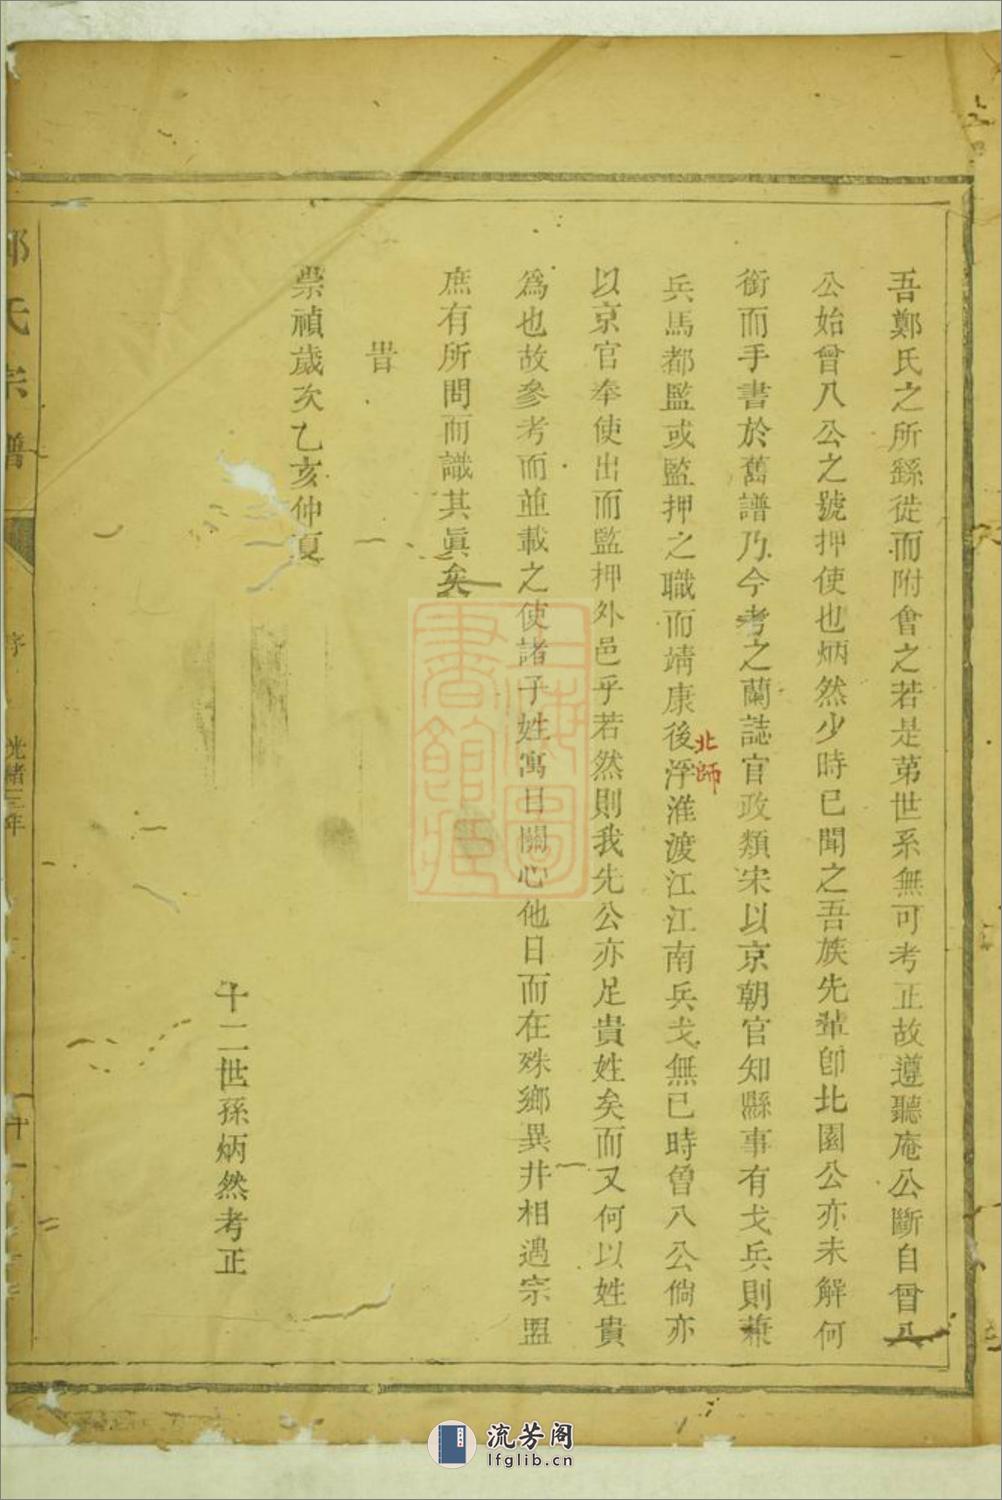 吾鄭氏之所繇從而附會之若是第世系無可考正故遵聽庵公斷自曾八
公始曾八公之號押使也炳然少時已聞之吾族先輩卽北園公亦未解何
銜而手書於舊譜乃今考之蘭誌官政類宋以京朝官知縣事有戈兵則兼
兵馬都監或監押之職而靖康後浮淮渡江江南兵戈無已時曾八公倘亦
北師
以京官奉使出而監押外邑乎若然則我先公亦足貴姓矣而又何以姓貴
爲也故參考而並載之使諸子姓寓目關心他日而在殊鄉異井相遇宗盟
庶有所問而識其眞矣
旹
崇禎歲次乙亥仲夏
十二世孫炳然考正
氏宗譜
序
光緒三年
十一
上海圖書館藏
流芳阁
lfglib.cn